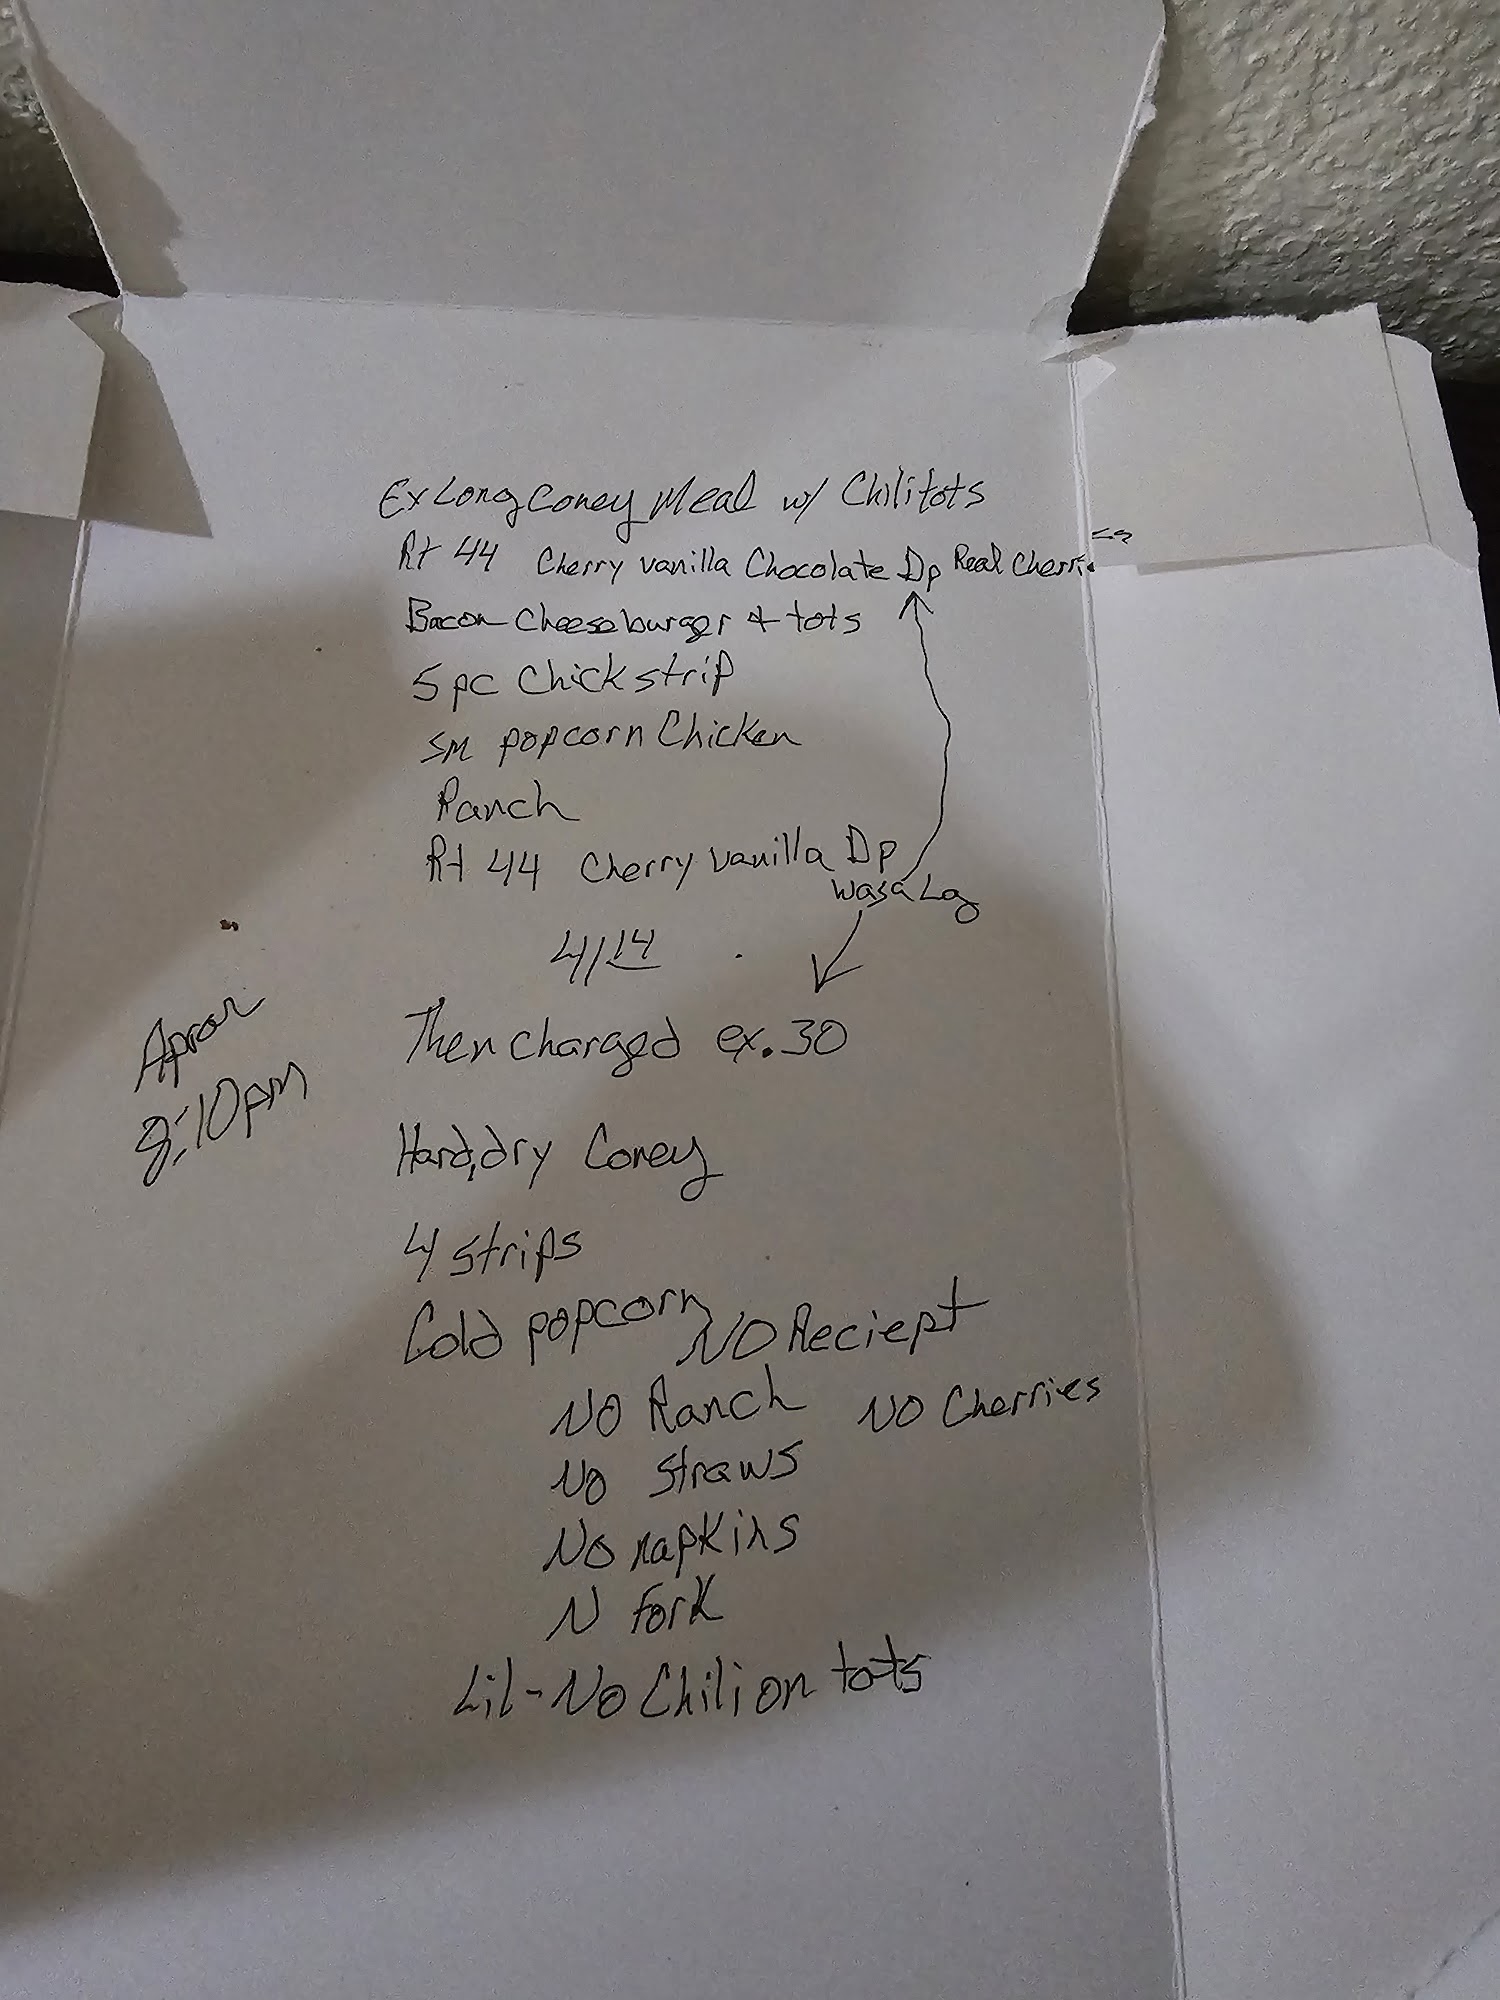 Ex Long Coney Meal w/ Chili tots
Rt 44 Cherry vanilla Chocolate Dp Real Cherries
Bacon Cheeseburger & tots
5 pc Chick strip
sm popcorn Chicken
Ranch
Rt 44 Cherry Vanilla Dp
was a Lg
4/14
Then charged ex .30
Aprox
8:10pm
Hard, dry Coney
4 strips
Cold popcorn
NO Reciept
NO Ranch NO Cherries
No straws
No napkins
N fork
Lil-No Chili on tots